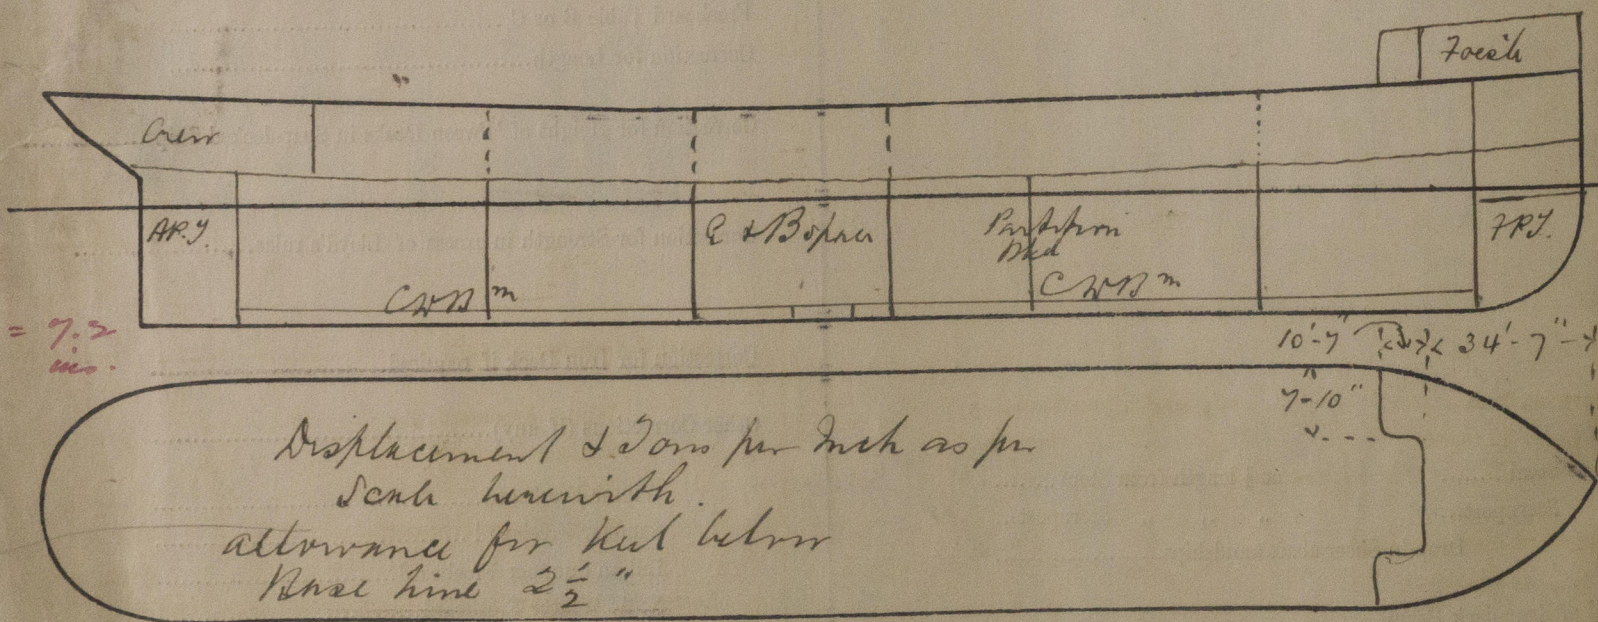 Focsle
Crew
A.P.T.
E & B space
Partition
Bkd
F.P.T.
CWB m
CWB m
= 7.2
ins.
10'-7"
34'-7"
7-10"
Displacement & Tons per Inch as per
Scale herewith.
allowance for Keel below
Base Line 2 1/2 "